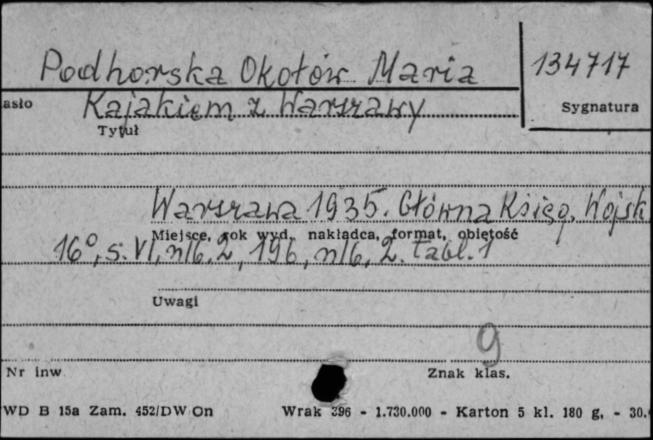 Podhorska Okołów Maria
134717
asło
Kajakiem z Warszawy
Sygnatura
Tytuł
Warszawa 1935. Główna Księg. Wojsk
Miejsce, rok wyd., nakładca, format, objętość
16°, s. VI, nlb. 2, 196, nlb. 2. tabl. 1
Uwagi
9
Nr inw
Znak klas.
WD B 15a Zam. 452/DW On Wrak 396 - 1.730.000 - Karton 5 kl. 180 g. - 30.